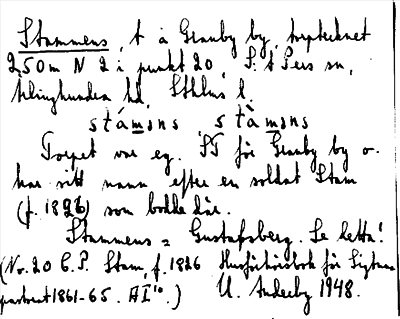 Stammens, t å Granby by, torptecknet
250m N 2 i punkt 20, S:t Pers sn,
Ärlinghundra hd, Sthlms l.
stámǝns stàmǝns
Torpet var eg. ST för Granby by o.
har sitt namn efter en soldat Stam
(f. 1826) som bodde där.
Stammens = Gustafsberg. Se detta!
(Nr. 20 C. P. Stam, f. 1826 Husförhörsbok för Sigtuna
pastorat 1861-65. AI¹⁰.) U. 1948.